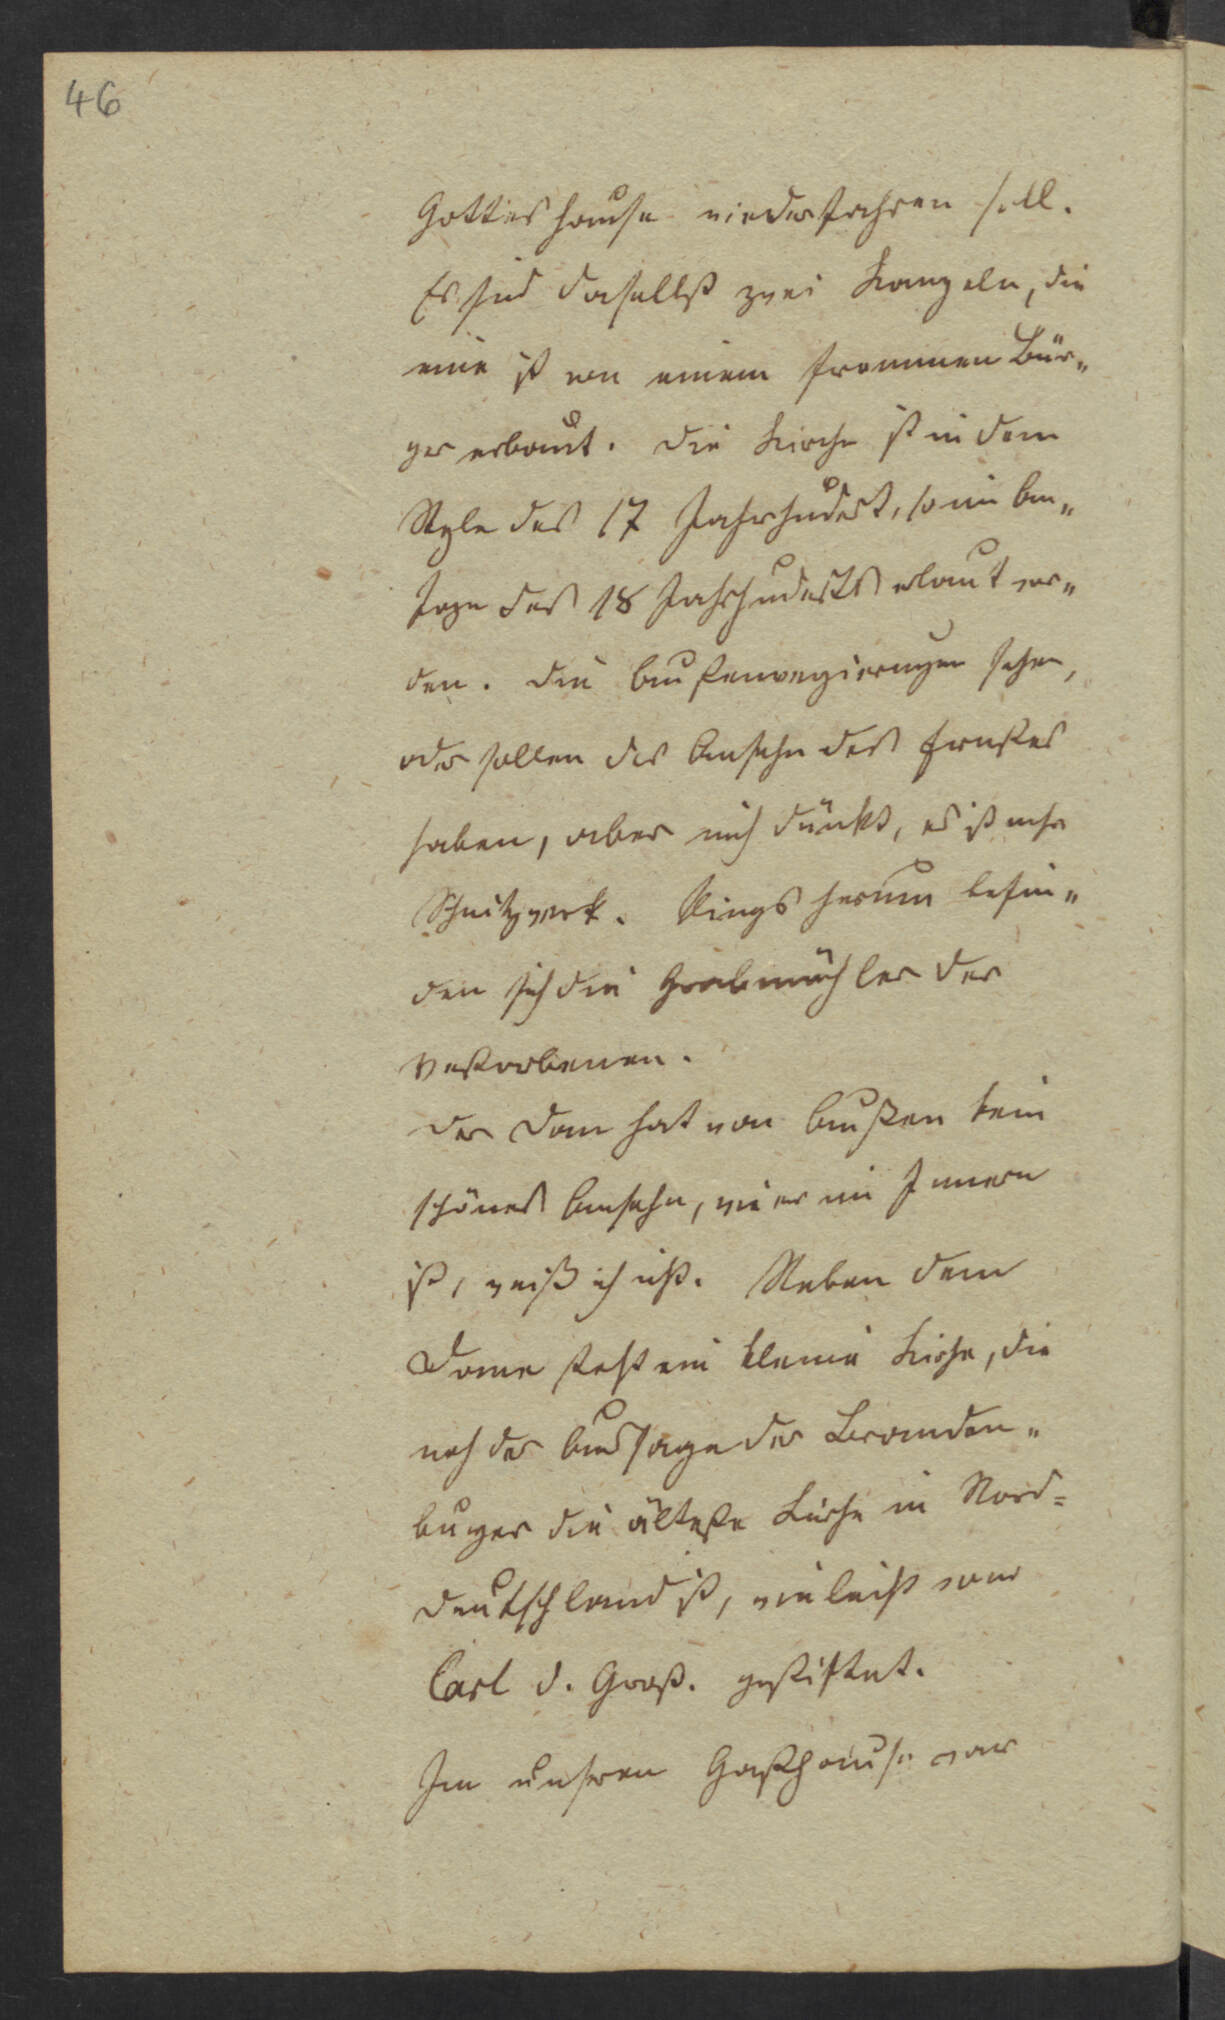 46
Gotteshause niederfahren soll.
Es sind daselbst zwei Kanzeln, die
eine ist von einem frommen Bür„
ger erbaut. Die Kirche ist in dem
Style des 17 Jahrhundert, so im An„
fage des 18 Jahrhunderts erbaut wor„
den. Die Außenverzierungen sehen,
oder sollen das Ansehn des
haben, aber mich dünkt, es ist mehr
Schnitzwerk. Rings herum befin„
den sich die Grabmähler der
Verstorbenen.
Der Dom hat von Außen kein
schönes Ansehn, wie er im Innern
ist, weiß ich nicht. Neben dem
Dome steht eine kleine Kirche, die
nach der Aussage der Branden„
burger die älteste Kirche in Nord=
deutschland ist, vieleicht von
Carl d. Groß. gestiftet.
In unseren Gasthause war